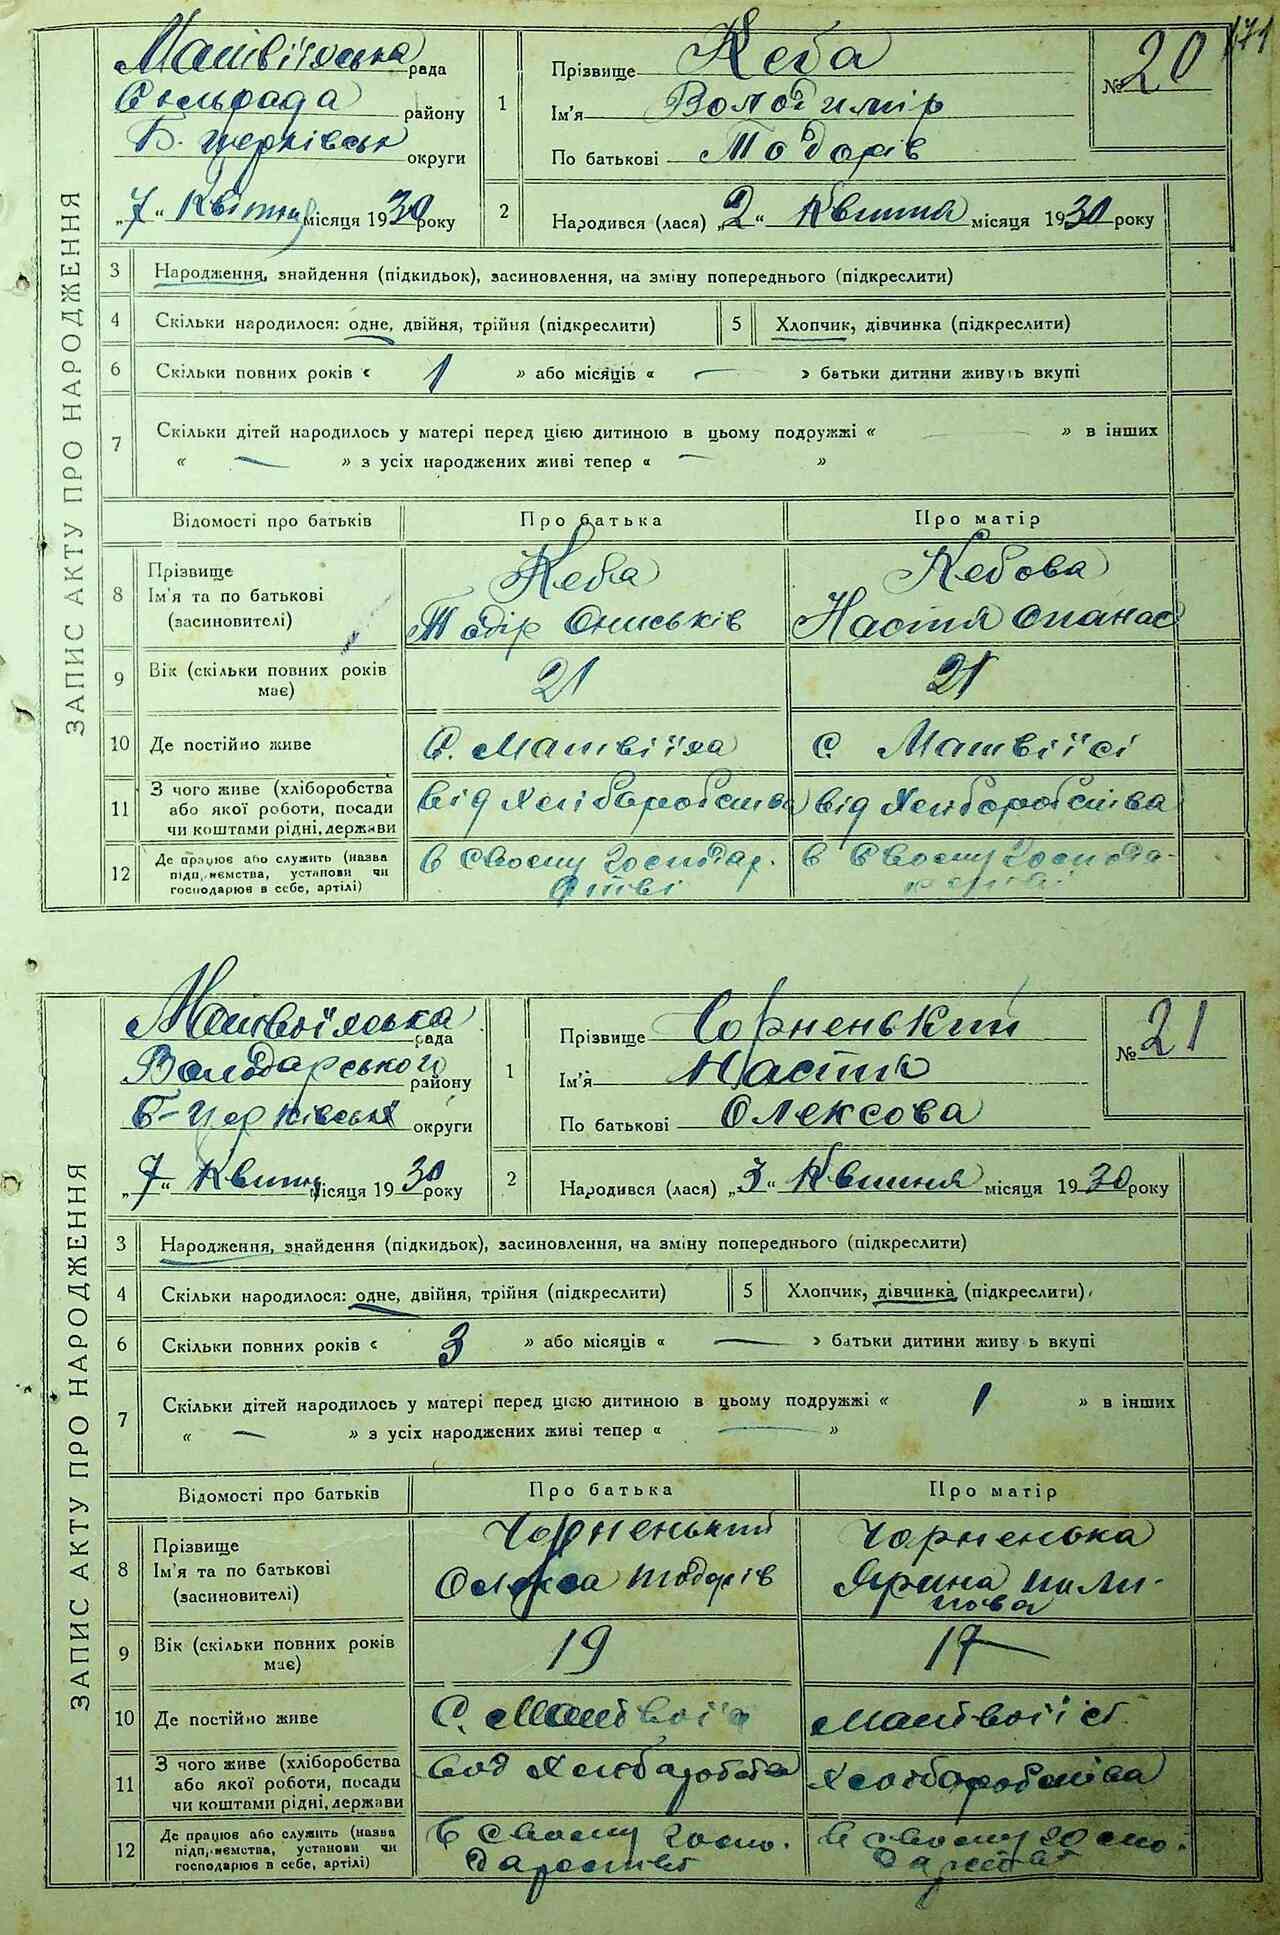 171
ЗАПИС АКТУ ПРО НАРОДЖЕННЯ
Матвіїська рада
Сельрада району
Б. Церківськ округи
„7“ Квітня місяця 1930 року
1
Прізвище Кеба
Ім'я Володимір
По батькові Тодорів
№ 20
2
Народився (лася) „2“ Квітня місяця 1930 року
3 Народження, знайдення (підкидьок), засиновлення, на зміну попереднього (підкреслити)
4 Скільки народилося: одне, двійня, трійня (підкреслити) 5 Хлопчик, дівчинка (підкреслити)
6 Скільки повних років « 1 » або місяців « — » батьки дитини живуть вкупі
7 Скільки дітей народилось у матері перед цією дитиною в цьому подружжі « — » в інших
« — » з усіх народжених живі тепер « — »
Відомості про батьків Про батька Про матір
8 Прізвище Ім'я та по батькові (засиновителі)
Кеба Тодір Ониськів
Кебова Настя Опанас
9 Вік (скільки повних років має) 21 21
10 Де постійно живе С. Матвіїха С. Матвіїсі
11 З чого живе (хліборобства або якої роботи, посади чи коштами рідні, держави
від Хліборобства від Хліборобства
12 Де працює або служить (назва підприємства, установи чи господарює в себе, артілі)
в Своєму Господар.
стві
в Своєму Господа-
рстві
ЗАПИС АКТУ ПРО НАРОДЖЕННЯ
Матвоїська рада
Володарського району
Б-Церківськ округи
„7“ Квітня місяця 1930 року
1
Прізвище Чорненький
Ім'я Настя
По батькові Олексова
№ 21
2
Народився (лася) „3“ Квітня місяця 1930 року
3 Народження, знайдення (підкидьок), засиновлення, на зміну попереднього (підкреслити)
4 Скільки народилося: одне, двійня, трійня (підкреслити) 5 Хлопчик, дівчинка (підкреслити)
6 Скільки повних років « 3 » або місяців « — » батьки дитини живу ь вкупі
7 Скільки дітей народилось у матері перед цією дитиною в цьому подружжі « 1 » в інших
« — » з усіх народжених живі тепер « — »
Відомості про батьків Про батька Про матір
8 Прізвище Ім'я та по батькові (засиновителі)
Чорненький
Олекса Тодорів
Чорненька
Ярина Пили-
пова
9 Вік (скільки повних років має) 19 17
10 Де постійно живе С. Матвоїха Матвоїісі
11 З чого живе (хліборобства або якої роботи, посади чи коштами рідні, держави
вод Хліборобства Хліборобства
12 Де працює або служить (назва підприємства, установи чи господарює в себе, артілі)
в Своєму госпо.
дарстві
в своєму госпо.
дарстві